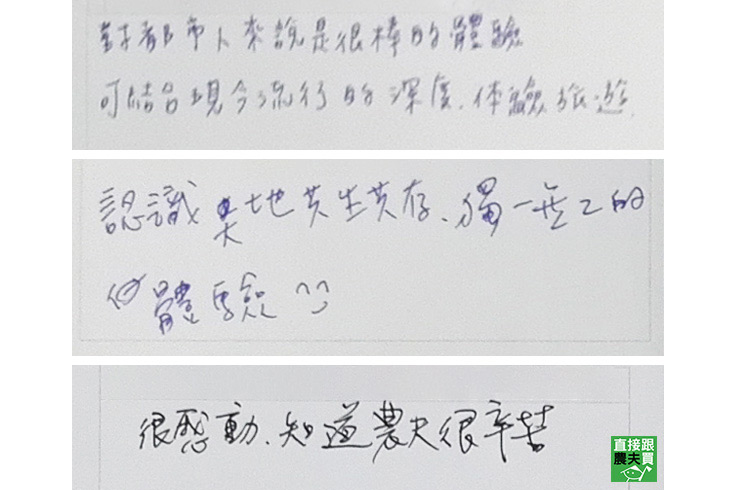 對都市人來說是很棒的體驗
可結合現今流行的深度、体驗旅遊
認識 地共生共存、獨一無二的
體驗
很感動、知道農夫很辛苦
直接跟
農夫買